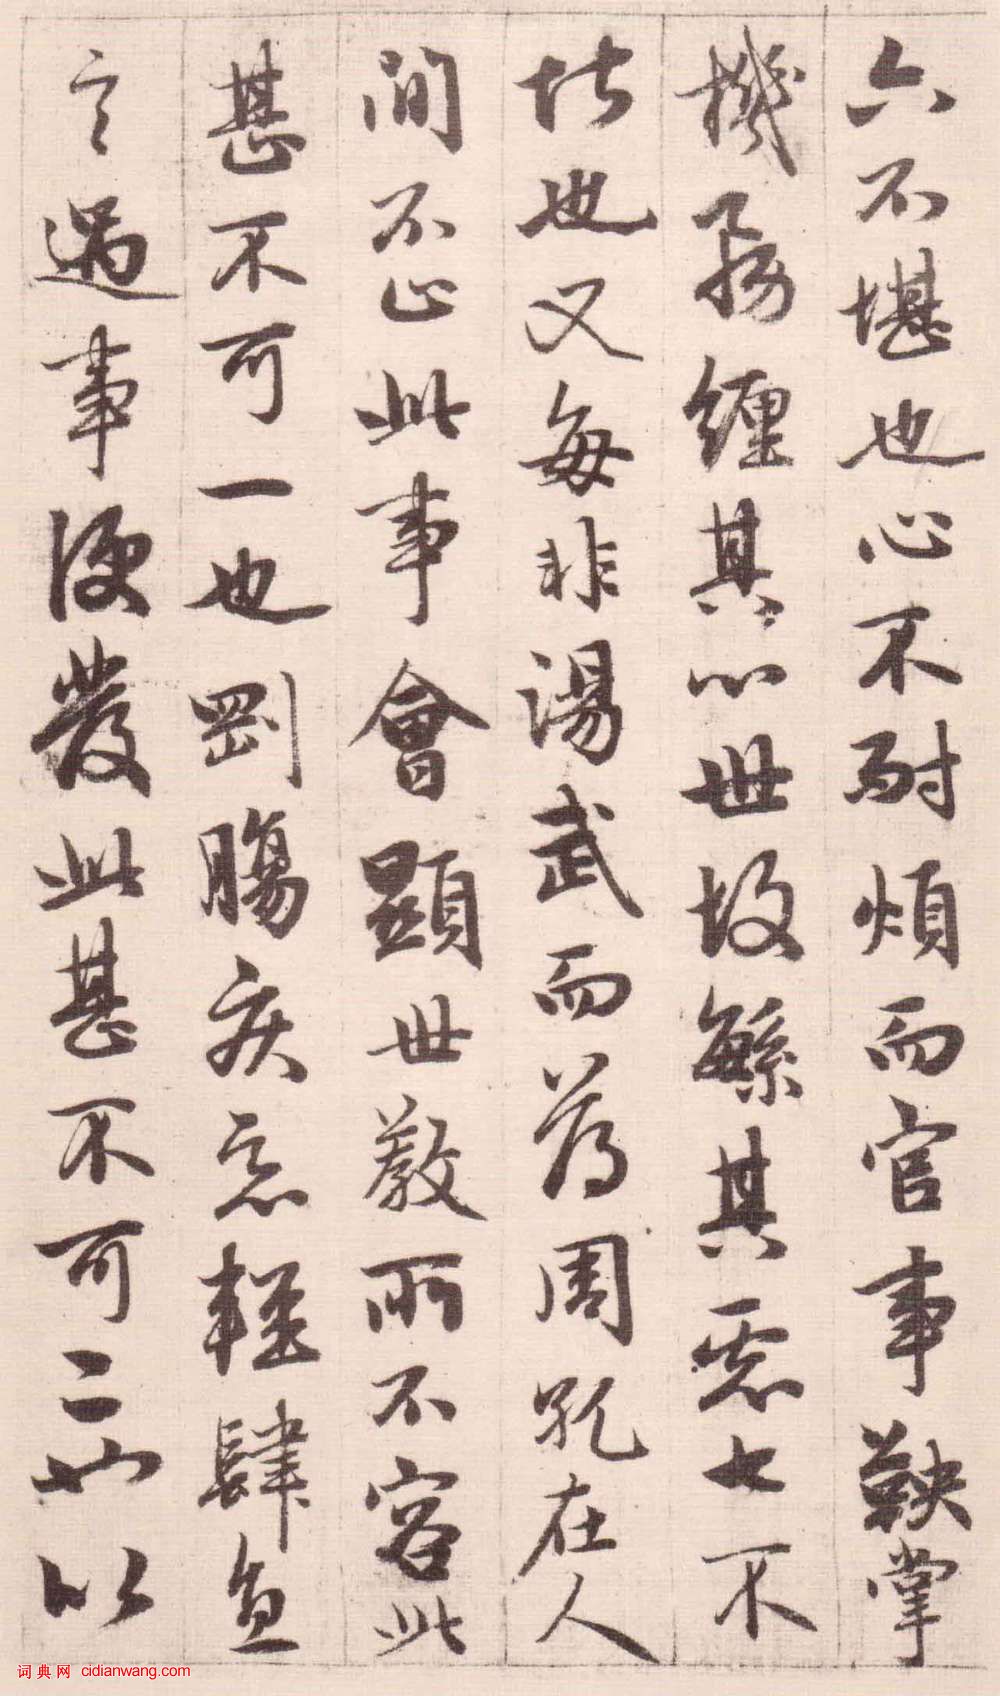 六不堪也心不耐煩而官事鞅掌
機務纏其心世故繁其慮七不
堪也又每非湯武而薄周孔在人
間不止此事會顯世教所不容此
甚不可一也剛腸疾惡輕肆直
言遇事便發此甚不可二也以
词典网 cidianwang.com